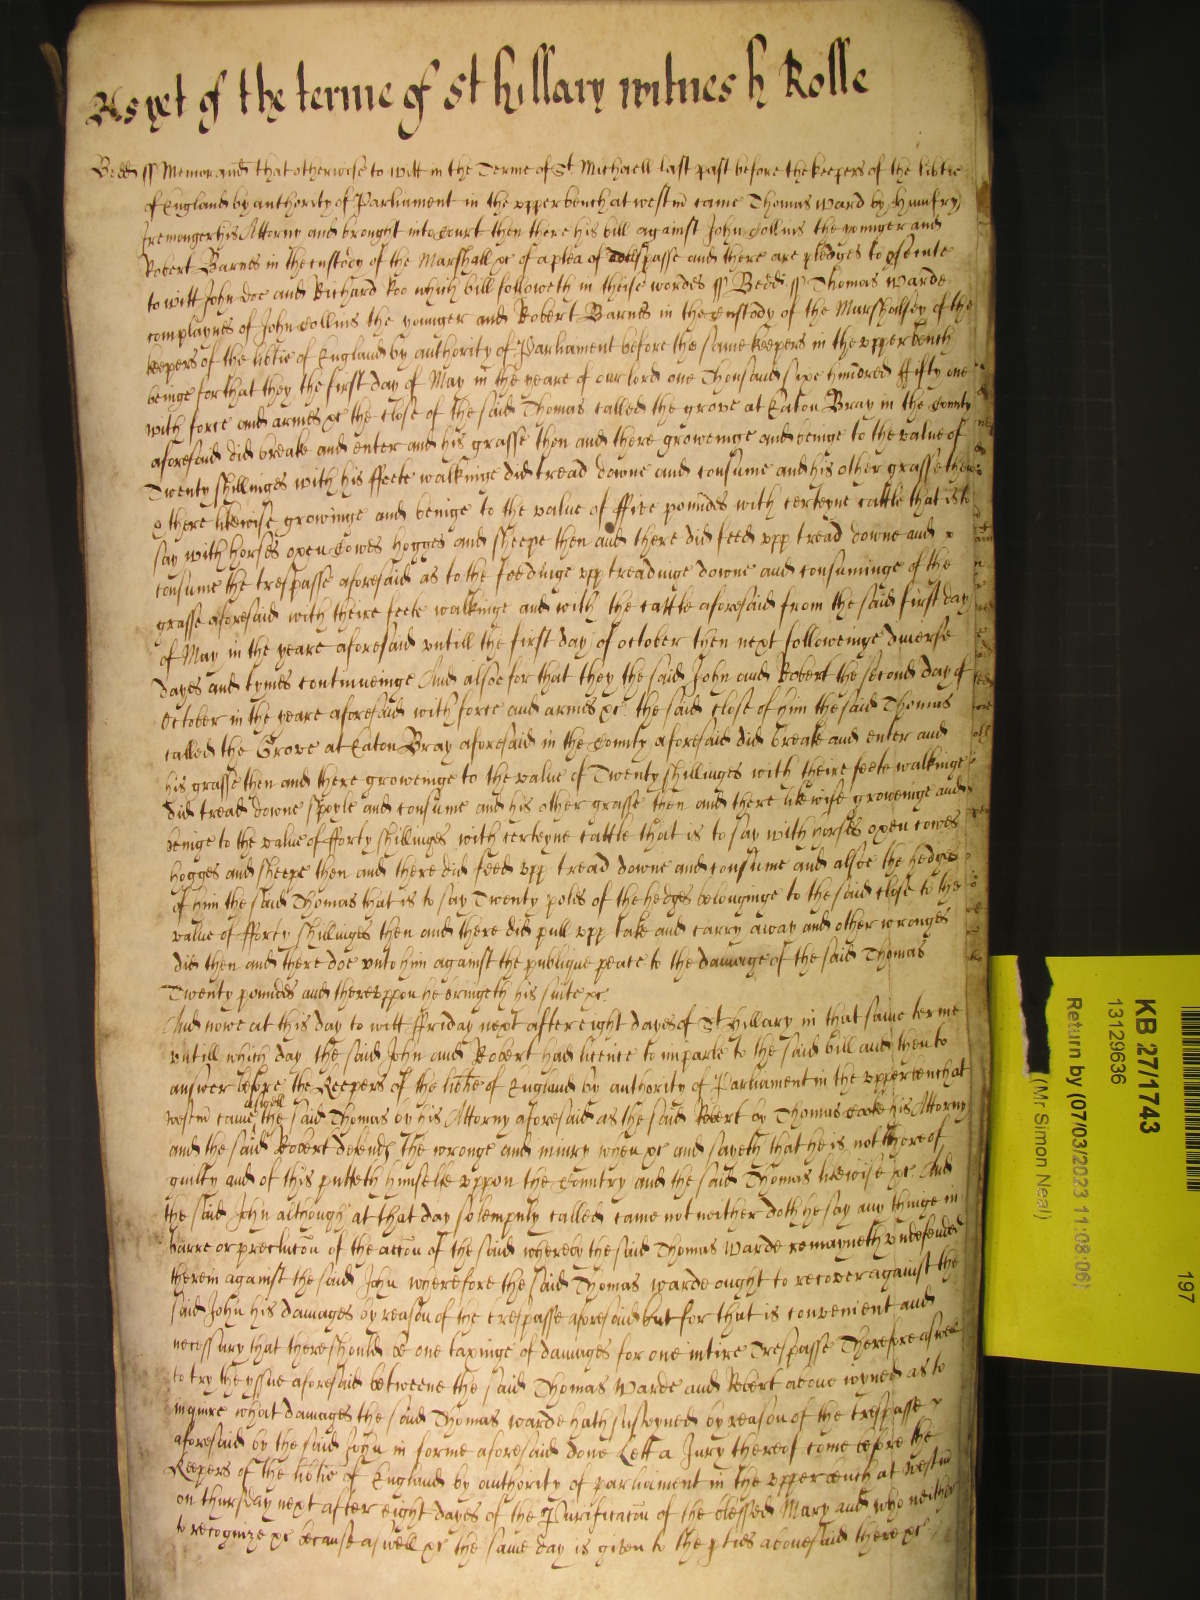 As yet of the terme of St Hillary witnes H Rolle
Bedd ss Memorand that otherwise to witt in the Terme of St Michaell last past before the keepers of the libtie
of England by authority of Parliament in the vpper bench at westm came Thomas Ward by Humfry
Iremonger his Attorny and brought into Court then there his bill against John Collins the younger and
Robert Barnes in the custody of the Marshall &c of a plea of trespasse and there are pledges to psecute
to witt John Doe and Richard Roo which bill followeth in theise wordes ss Bedd ss Thomas Warde
complaynes of John Collins the younger and Robert Barnes in the Custody of the Marshallsey of the
keepers of the libtie of England by authority of Parliament before the same keepers in the vpper bench
beinge for that they the first day of May in the yeare of our lord one Thousand sixe hundred ffifty one
with force and armes &c the close of the said Thomas called the grove at Eaton Bray in the County
aforesaid did breake and enter and his grasse then and there groweinge and beinge to the value of
Twenty shillinges with his ffeete walkinge did tread downe and consume and his other grasse then
& there likewise growinge and beinge to the value of ffive poundes with certeyne cattle that is to
say with horses oxen Cowes hogges and sheepe then and there did feed vpp tread downe and
consume the trespasse aforesaid as to the feedinge vpp treadinge downe and consuminge of the
grasse aforesaid with theire feete walkinge and with the cattle aforesaid from the said first day
of May in the yeare aforesaid vntill the first day of october then next followeinge diverse
dayes and tymes continueinge And alsoe for that they the said John and Robert the second day of
October in the yeare aforesaid with force and armes &c the said close of him the said Thomas
called the Grove at Eaton Bray aforesaid in the County aforesaid did breake and enter and
his grasse then and there groweinge to the value of Twenty shillinges with theire feete walkinge
did tread downe spoyle and consume and his other grasse then and there likewise groweinge and
beinge to the value of fforty shillinges with certeyne cattle that is to say with horses oxen cowes
hogges and sheepe then and there did feed vpp tread downe and consume and alsoe the hedges
of him the said Thomas that is to say Twenty poles of the hedges belonginge to the said close to the
value of fforty shillinges then and there did pull vpp take and carry away and other wronges
did then and there doe vnto him against the publique peace to the damage of the said Thomas
Twenty poundes and therevppon he bringeth his suite &c
And nowe at this day to witt ffriday next after eight dayes of St Hillary in that same terme
vntill which day the said John and Robert had licence to imparle to the said bill and then to
answer before the Keepers of the libtie of England by authority of Parliament in the vpper bench at
westm came aswell the said Thomas by his Attorny aforesaid as the said Robert by Thomas Cooke his Attorny
and the said Robert defends the wronge and iniury when &c and sayeth that he is not thereof
guilty and of this putteth himselfe vppon the Countrey and the said Thomas likewise &c And
the said John although at that day solempnly called came not neither doth he say any thinge in
barre or preclucon of the accon of the said whereby the said Thomas Warde remayneth vndefended
therein against the said John wherefore the said Thomas warde ought to recover against the
said John his damages by reason of the trespasse aforesaid but for that is convenient and
necessary that there should be one taxinge of damages for one intire Trespasse Therefore aswell
to try the yssue aforesaid betweene the said Thomas Warde and Robert above ioyned as to
inquire what damages the said Thomas warde hath susteyned by reason of the trespasse
aforesaid by the said John in forme aforesaid done Lett a Jury thereof come before the
Keepers of the libtie of England by authority of parliament in the vpper bench at westm
on thursday next after eight dayes of the Purificacon of the blessed Mary and who neither
to recognize &c because aswell &c the same day is given to the pties abovesaid there &c
KB 27/1743
13129636
Return by (07/03/2023 11:08:06)
(Mr Simon Neal)
197